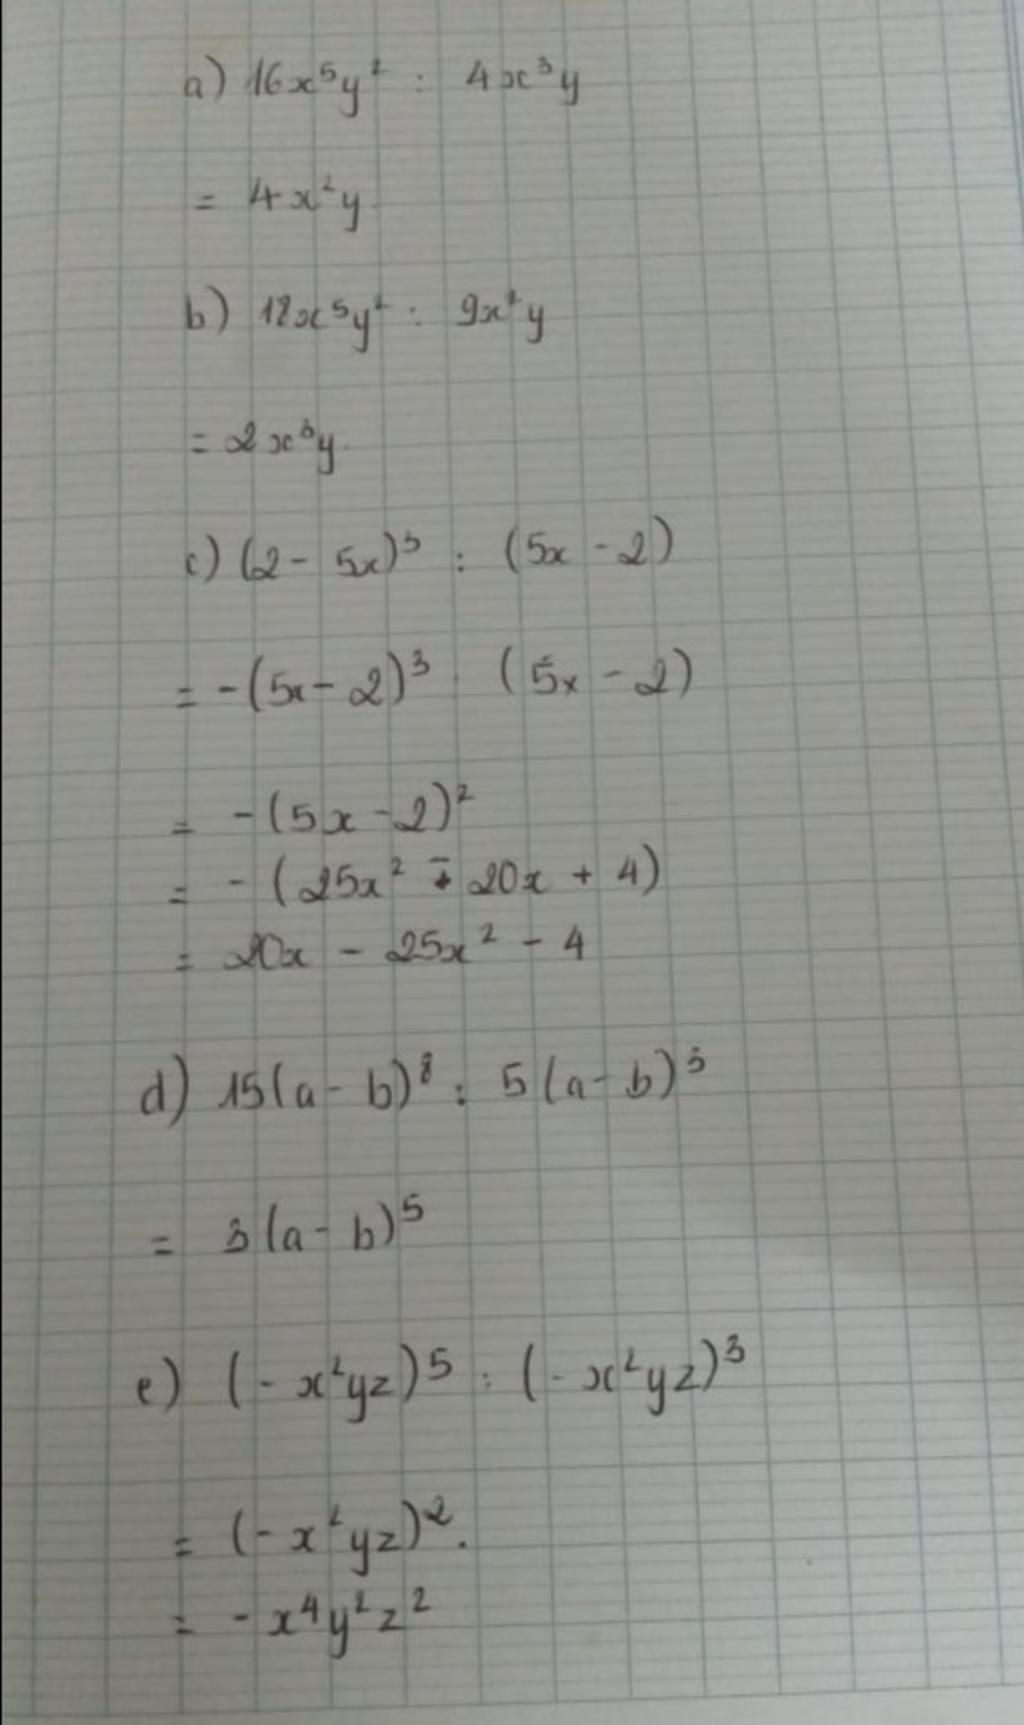 a) 16x⁵y² : 4x³y
= 4x²y
b) 18x⁵y² : 9x²y
= 2x³y
c) (2 - 5x)³ : (5x - 2)
= -(5x - 2)³ : (5x - 2)
= -(5x - 2)²
= -(25x² - 20x + 4)
= 20x - 25x² - 4
d) 15(a - b)⁸ : 5(a - b)³
= 3(a - b)⁵
e) (-x²yz)⁵ : (-x²yz)³
= (-x²yz)².
= -x⁴y²z²